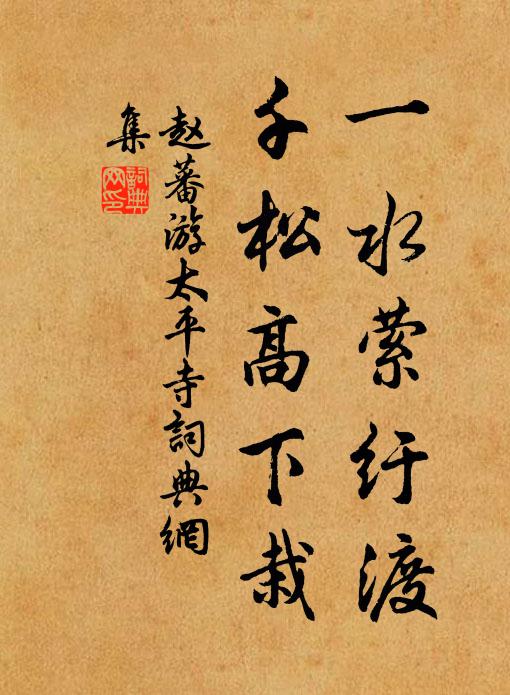 一水萦纡渡
千松高下栽
赵蕃游太平寺詞典網
集
詞典网印